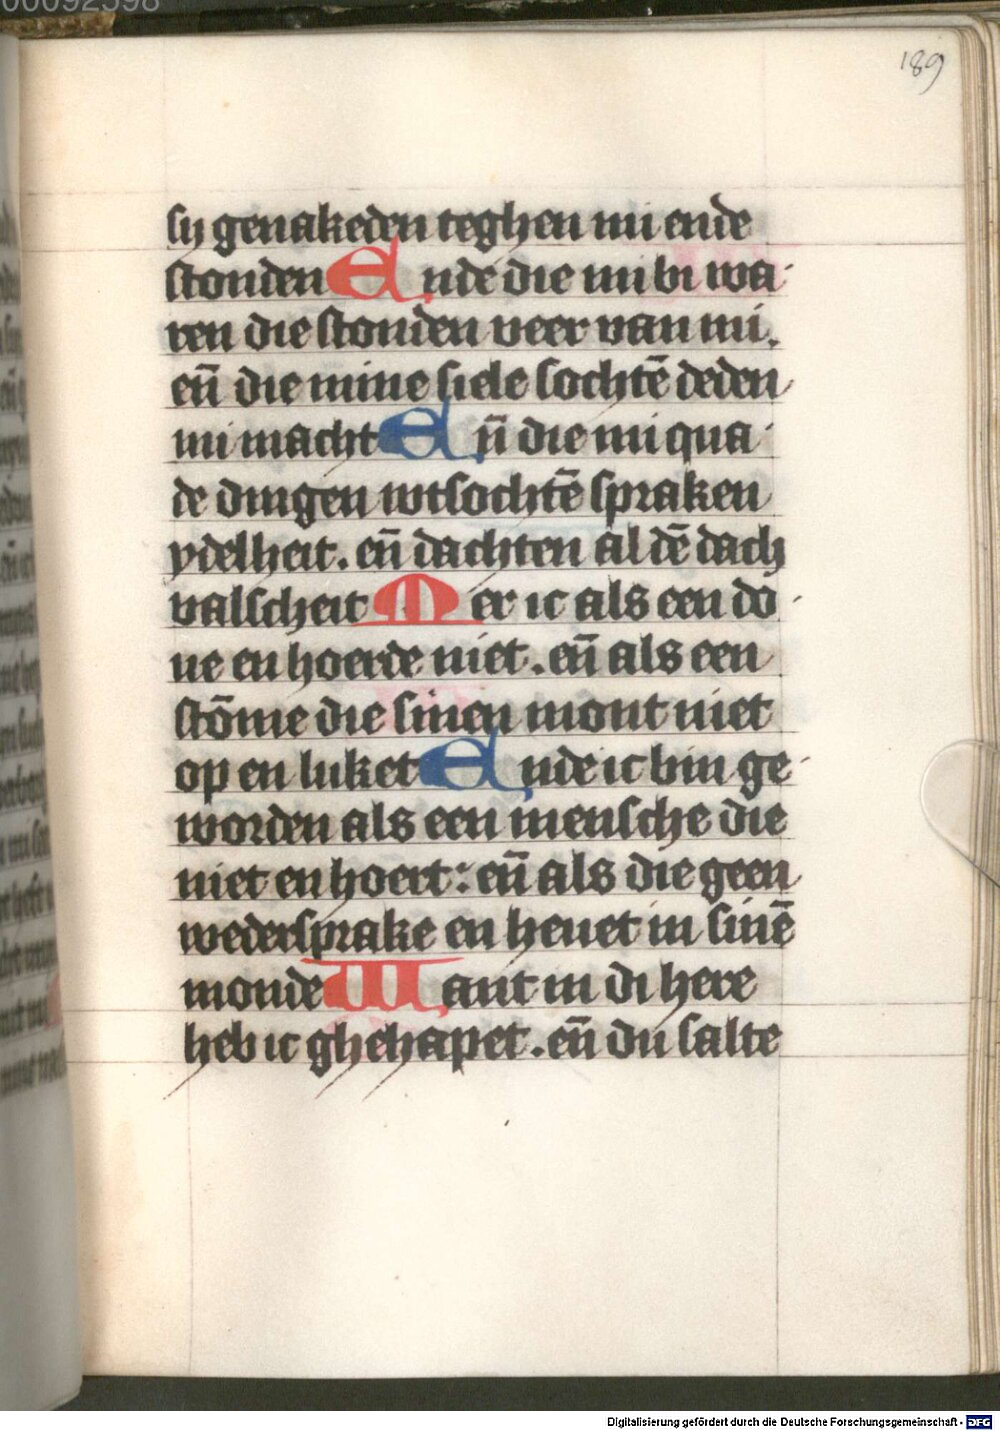 00092598
189
sij genakeden teghen mi ende
stonden Ende die mi bi wa-
ren die stonden veer van mi.
eñ die mine siele sochtē deden
mi macht Eñ die mi qua-
de dingen wtsochtē spraken
ydelheit. eñ dachten al dē dach
valscheit Mer ic als een do-
ue en hoerde niet. eñ als een
stōme die sinen mont niet
op en luket Ende ic bin ge-
worden als een mensche die
niet en hoert: eñ als die geen
wedersprake en heuet in sinē
monde Want in di here
heb ic ghehapet. eñ du salte
Digitalisierung gefördert durch die Deutsche Forschungsgemeinschaft - DFG